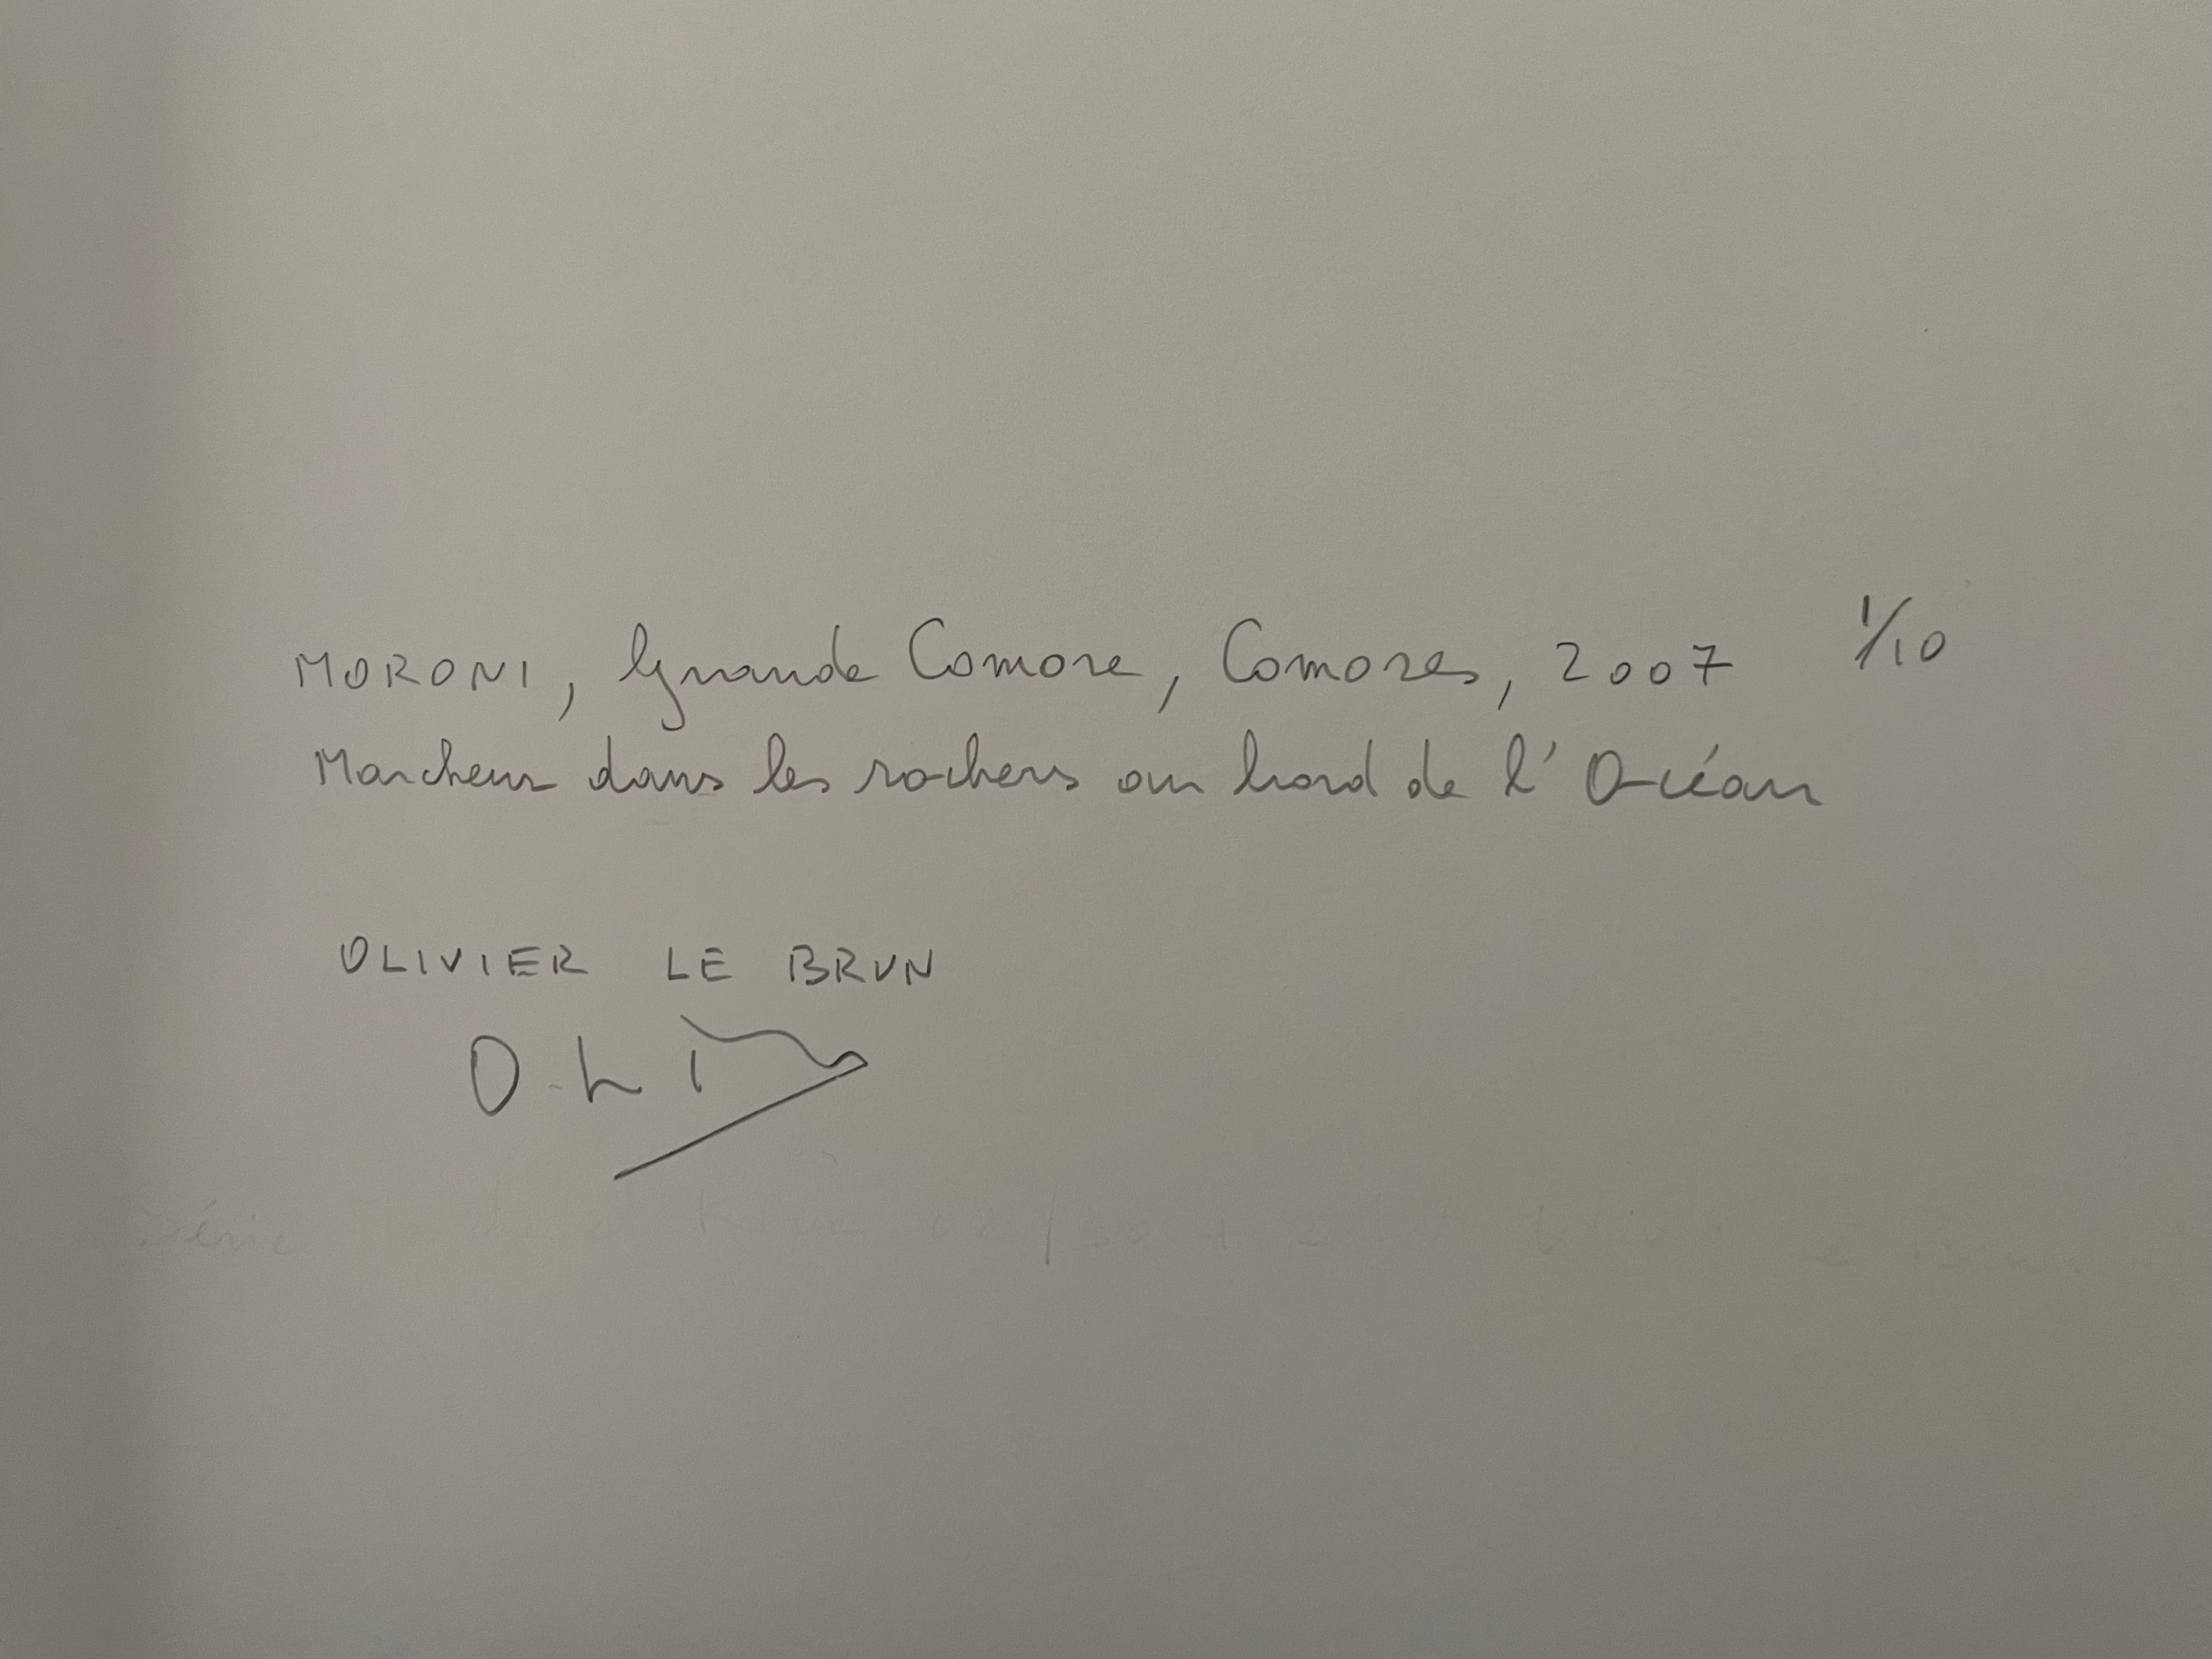 MORONI, Grande Comore, Comores, 2007 1/10
Marcheur dans les rochers au bord de l'Océan
OLIVIER LE BRUN
Série